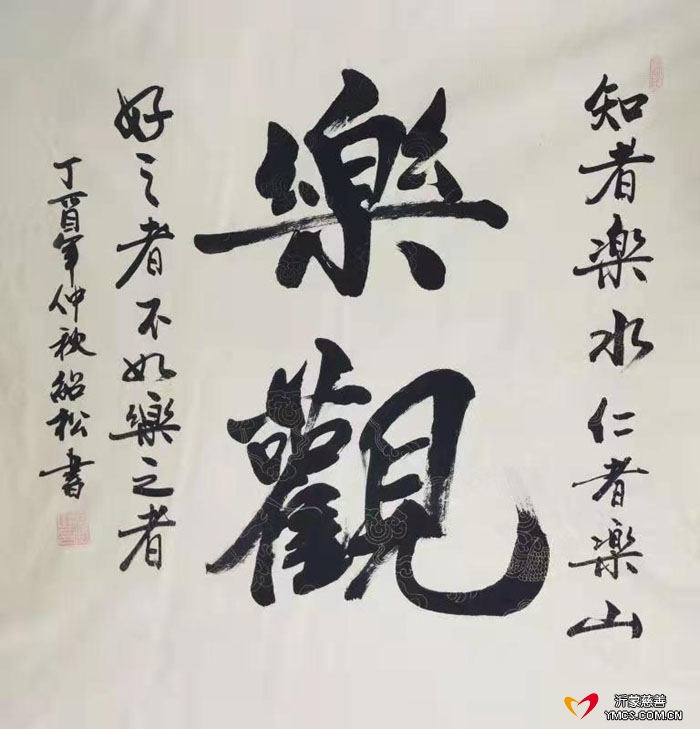 知者樂水仁者樂山
樂觀
好之者不如樂之者
丁酉年仲秋紹松書
沂蒙慈善
YMCS.COM.CN